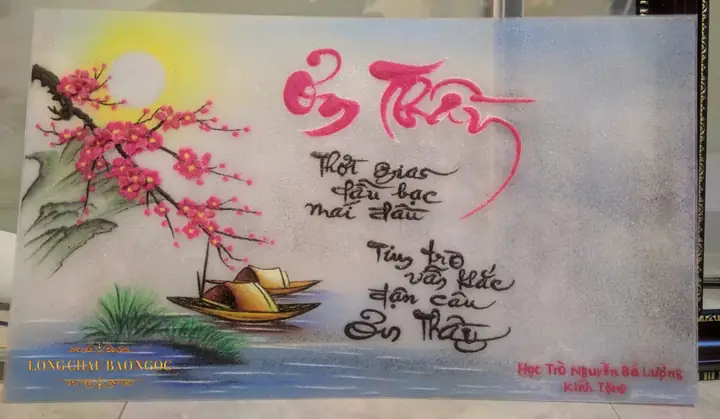 Ơn Thầy
Thời gian
dẫu bạc
mái đầu
Tim trò
vẫn khắc
đậm câu
Ơn Thầy
LONG CHÂU BẢO NGỌC
Học Trò Nguyễn Bá Lượng
Kính Tặng